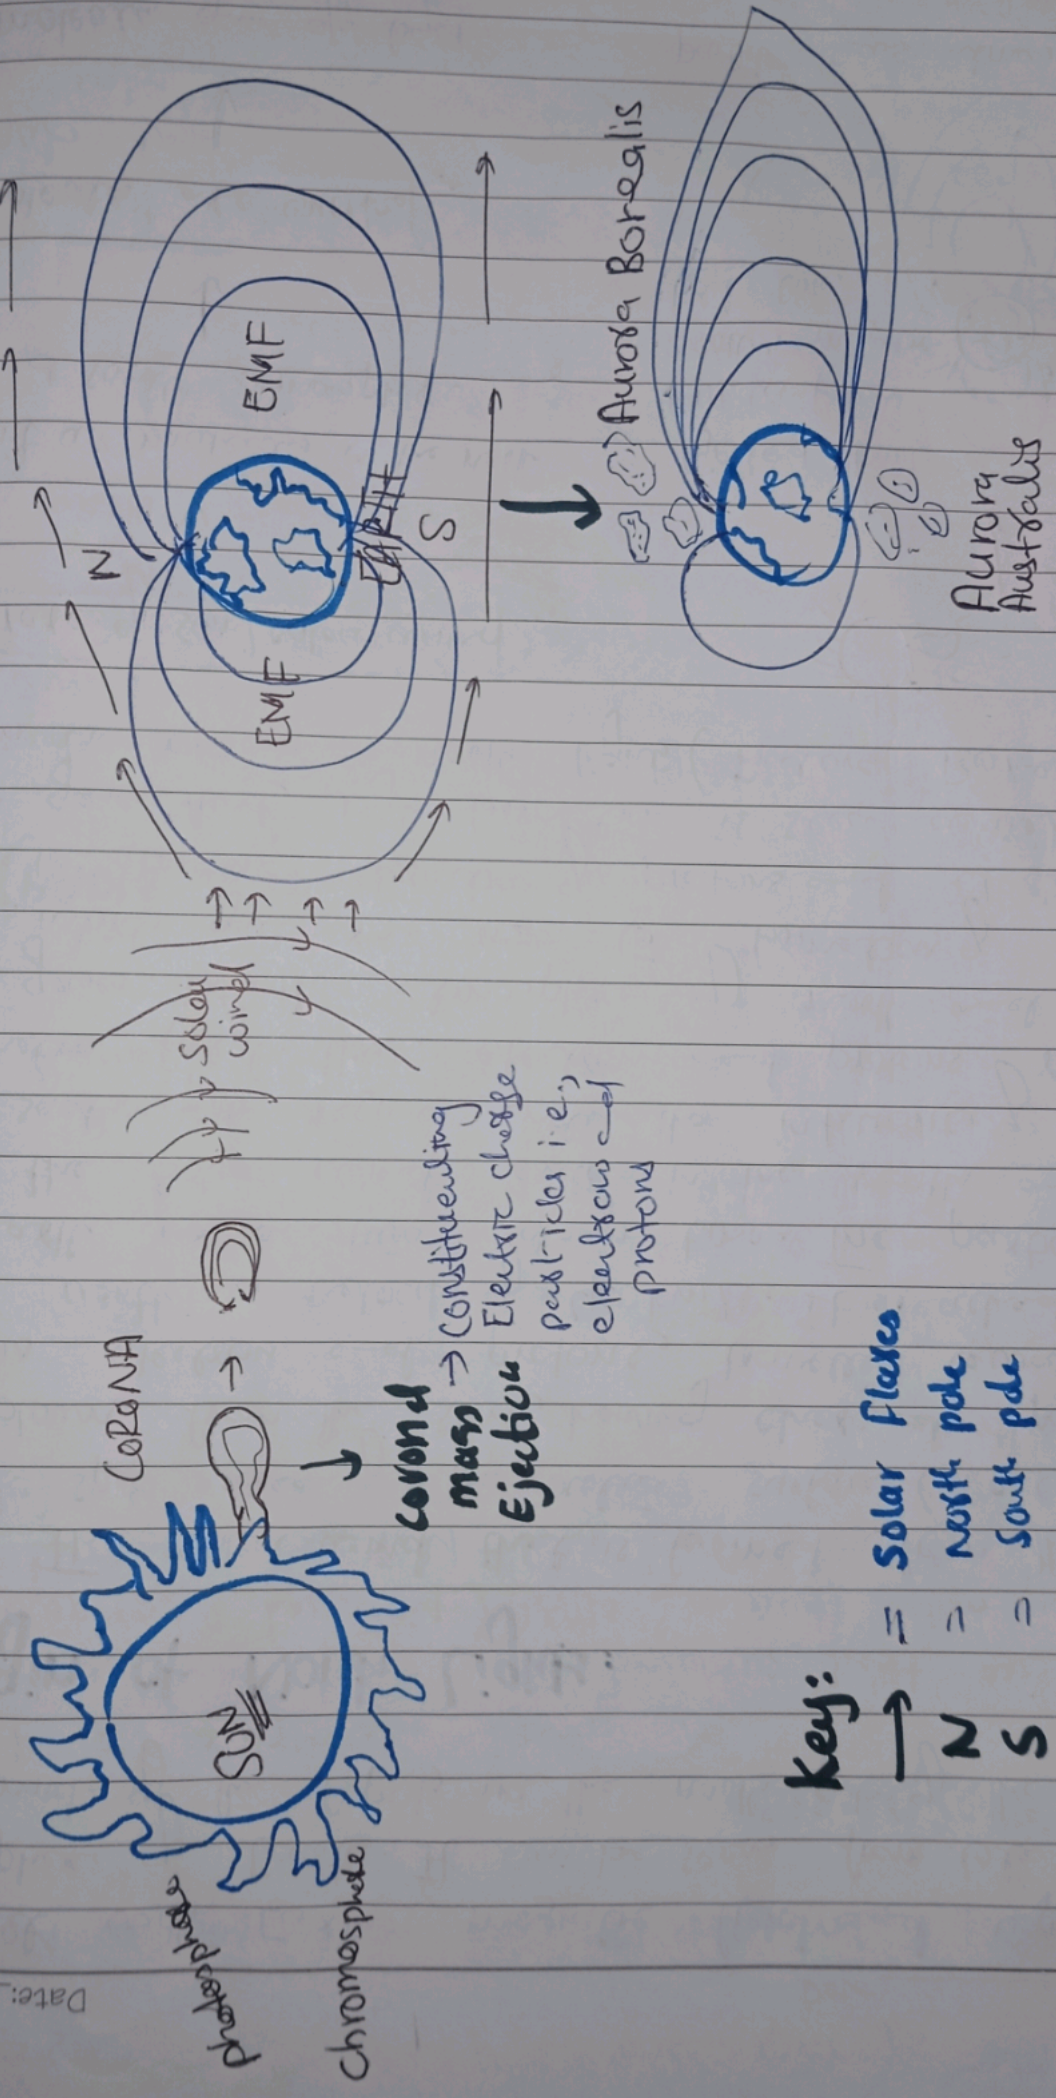 Date:
photosphere
chromosphere
SUN
CORONA
Coronal
mass
Ejection
→ constituenting
Electric charge
particles i.e.,
electrons and
protons
Solar
wind
EMF
N
EARTH
S
EMF
Aurora Borealis
Aurora
Australis
Key:
→ = Solar flares
N = North pole
S = South pole